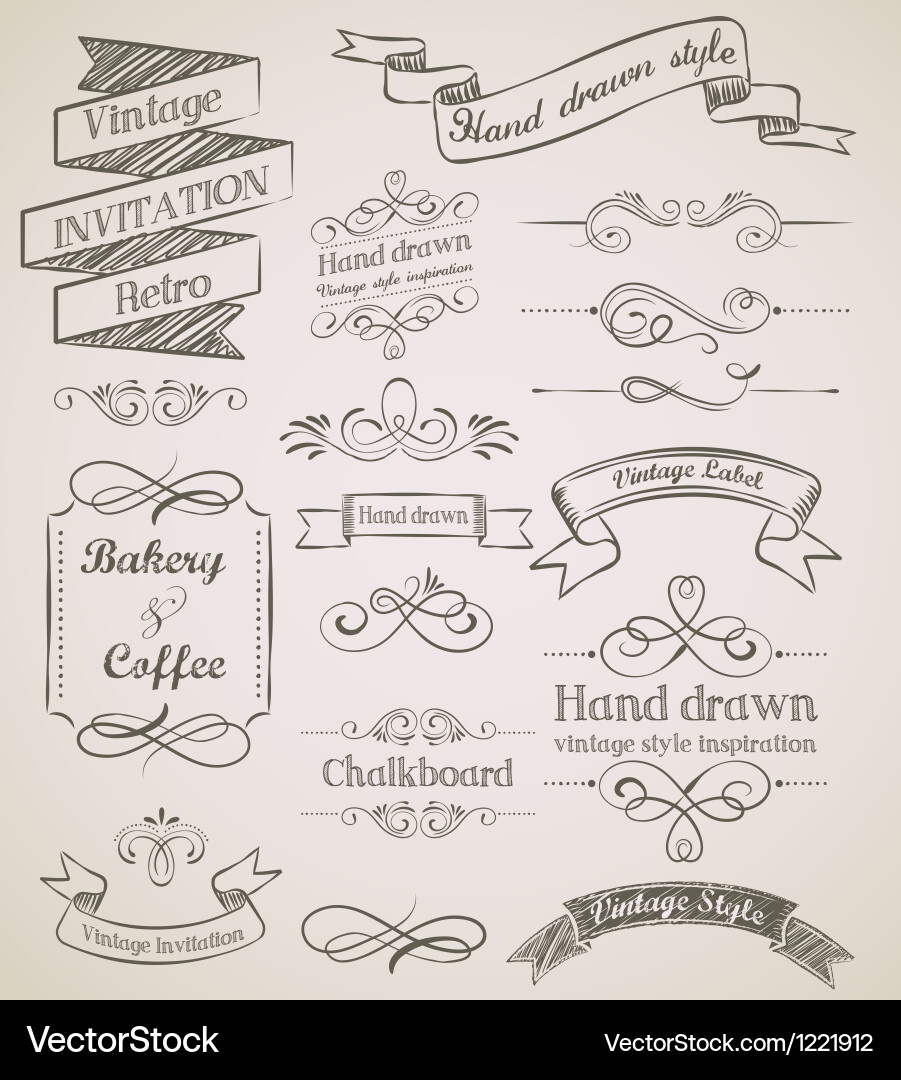 Vintage
INVITATION
Retro
Hand drawn style
Hand drawn
Vintage style inspiration
Bakery
&
Coffee
Hand drawn
Vintage Label
Chalkboard
Hand drawn
vintage style inspiration
Vintage Invitation
Vintage Style
VectorStock®
VectorStock.com/1221912